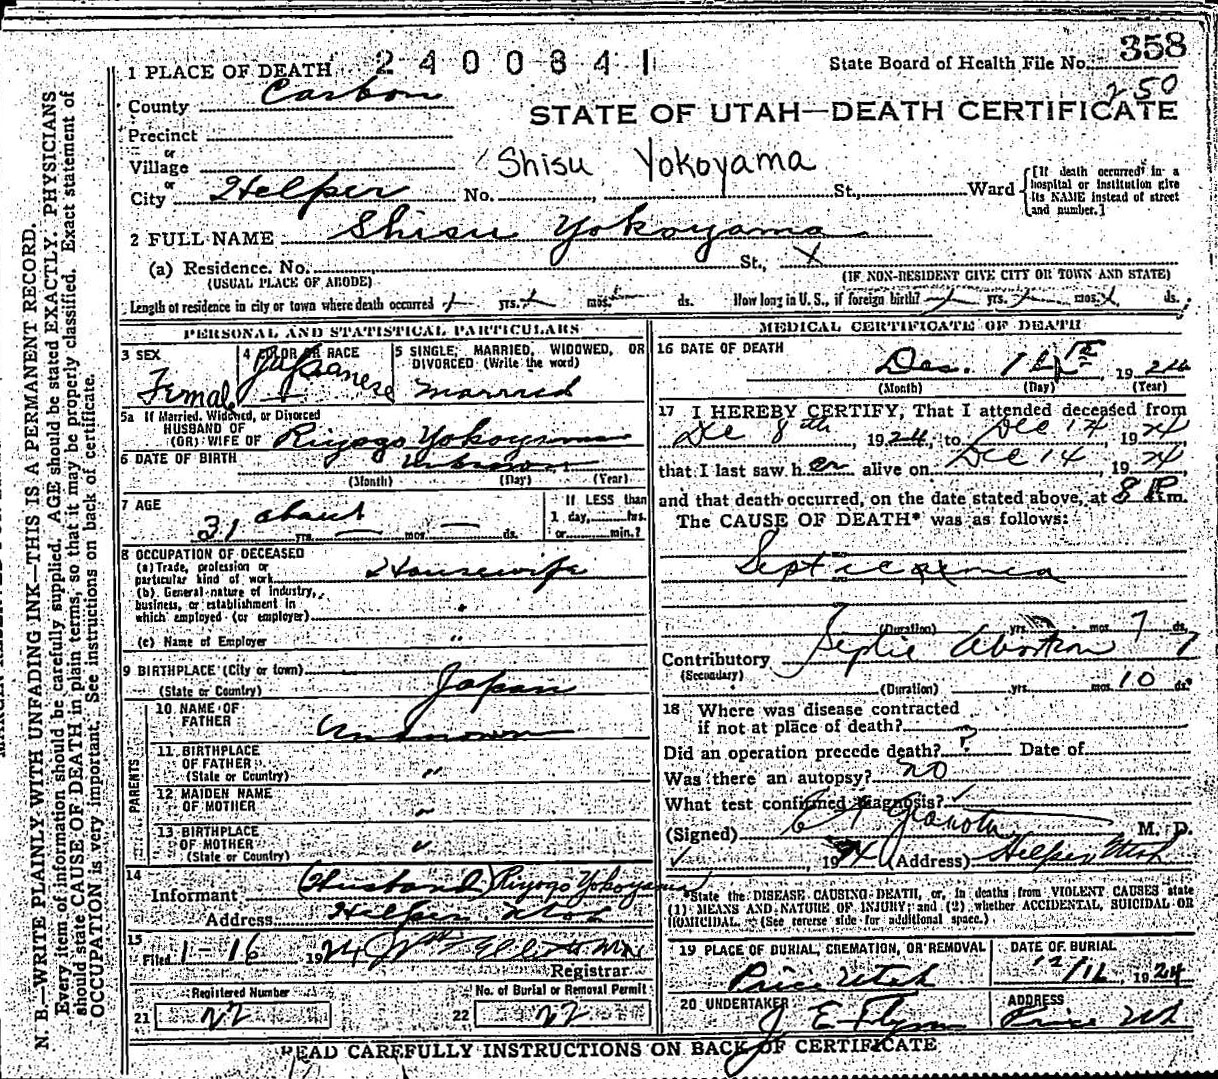 2400841
358
1 PLACE OF DEATH
State Board of Health File No.
250
County Carbon
STATE OF UTAH—DEATH CERTIFICATE
Precinct
or
Village
Shisu Yokoyama
or
City Helper No. St., Ward
[If death occurred in a hospital or institution give its NAME instead of street and number.]
2 FULL NAME Shisu Yokoyama
(a) Residence. No. St., X
(USUAL PLACE OF ABODE) (IF NON-RESIDENT GIVE CITY OR TOWN AND STATE)
Length of residence in city or town where death occurred yrs. mos. ds. How long in U. S., if foreign birth? yrs. mos. ds.
PERSONAL AND STATISTICAL PARTICULARS
3 SEX
Femal
4 COLOR OR RACE
Japanese
5 SINGLE, MARRIED, WIDOWED, OR DIVORCED (Write the word)
Married
5a If Married, Widowed, or Divorced
HUSBAND OF
(OR) WIFE OF Riyogo Yokoyama
6 DATE OF BIRTH Unknown
(Month) (Day) (Year)
7 AGE
about
31 yrs. — mos. — ds.
If LESS than
1 day, hrs.
or min.?
8 OCCUPATION OF DECEASED
(a) Trade, profession or
particular kind of work Housewife
(b) General nature of industry,
business, or establishment in
which employed (or employer)
(c) Name of Employer "
9 BIRTHPLACE (City or town)
(State or Country) Japan
PARENTS
10 NAME OF
FATHER Unknown
11 BIRTHPLACE
OF FATHER
(State or Country) "
12 MAIDEN NAME
OF MOTHER "
13 BIRTHPLACE
OF MOTHER
(State or Country) "
14
Informant (Husband) Riyogo Yokoyama
Address Helper Utah
15
Filed 1-16 1924
Registrar
Registered Number
21 22
No. of Burial or Removal Permit
22 22
MEDICAL CERTIFICATE OF DEATH
16 DATE OF DEATH
Dec. 1924
(Month) (Day) (Year)
17 I HEREBY CERTIFY, That I attended deceased from
Dec 8th, 1924, to Dec 14, 1924,
that I last saw her alive on Dec 14, 1924,
and that death occurred, on the date stated above, at 8 P.m.
The CAUSE OF DEATH* was as follows:
Septicaemia
(Duration) yrs. mos. 7 ds.
Contributory Septic Abortion
(Secondary)
(Duration) yrs. mos. 10 ds.
18 Where was disease contracted
if not at place of death?
Did an operation precede death? ? Date of
Was there an autopsy? no
What test confirmed diagnosis?
(Signed) M. D.
1924 (Address) Helper Utah
*State the DISEASE CAUSING DEATH, or, in deaths from VIOLENT CAUSES state
(1) MEANS AND NATURE OF INJURY; and (2) whether ACCIDENTAL, SUICIDAL OR
HOMICIDAL. (See reverse side for additional space.)
19 PLACE OF BURIAL, CREMATION, OR REMOVAL
Price Utah
DATE OF BURIAL
12/16, 1924
20 UNDERTAKER
J E Flynn
ADDRESS
Price Ut
READ CAREFULLY INSTRUCTIONS ON BACK OF CERTIFICATE
N. B.—WRITE PLAINLY WITH UNFADING INK—THIS IS A PERMANENT RECORD.
Every item of information should be carefully supplied. AGE should be stated EXACTLY. PHYSICIANS
should state CAUSE OF DEATH in plain terms, so that it may be properly classified. Exact statement of
OCCUPATION is very important. See instructions on back of certificate.